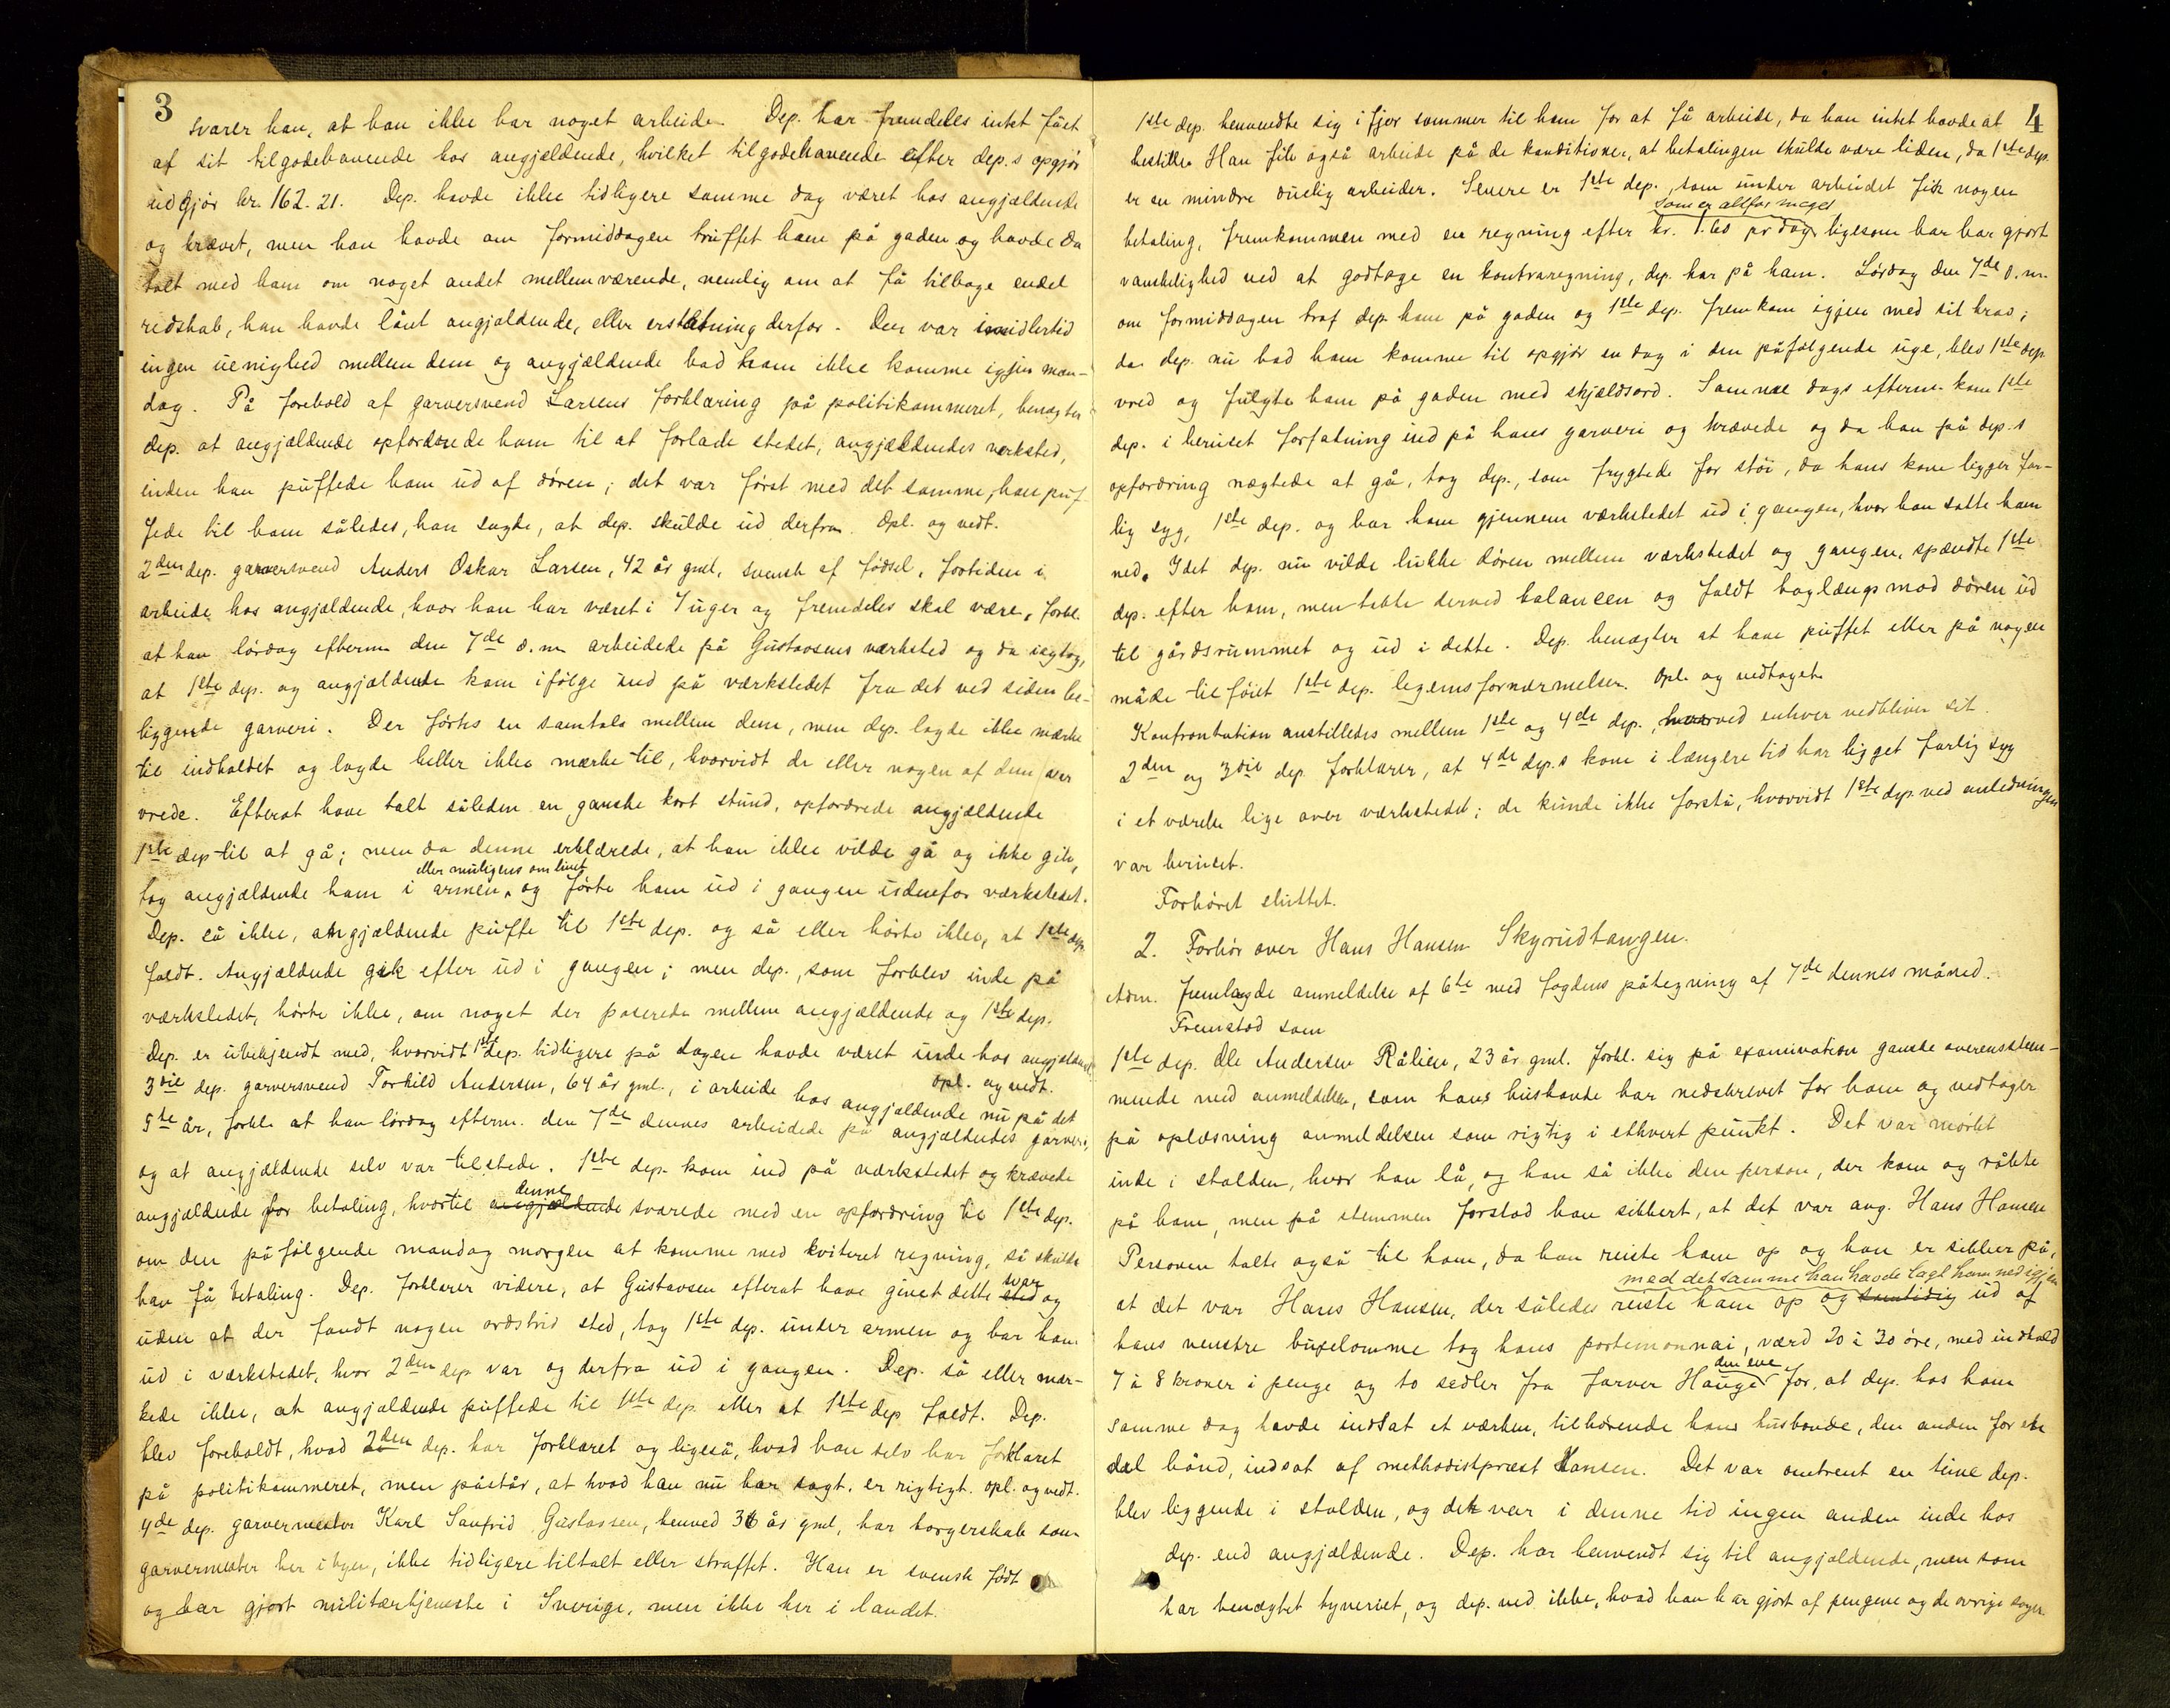 3
svarer han, at han ikke har noget arbeide. Dep. har fremdeles intet fået
af sit tilgodehavende hos angjældende, hvilket tilgodehavende efter dep.s opgjør
udgjør kr. 162.21. Dep. havde ikke tidligere samme dag været hos angjældende
og krævet, men han havde om formiddagen truffet ham på gaden og havde da
talt med ham om noget andet mellemværende, nemlig om at få tilbage endel
redskab, han havde lånt angjældende, eller erstatning derfor. Der var imidlertid
ingen uenighed mellem dem og angjældende bad ham ikke komme igjen man-
dag. På forehold af garversvend Larsens forklaring på politikammeret, benægter
dep. at angjældende opfordrede ham til at forlade stedet, angjældendes værksted,
inden han puffede ham ud af døren; det var først med det samme, han puf-
fede til ham således, han sagde, at dep. skulde ud derfra. Opl. og vedt.
2den dep. garversvend Anders Oskar Larsen, 42 år gml., svensk af fødsel, fortiden i
arbeide hos angjældende, hvor han har været i 7 uger og fremdeles skal være, forkl.
at han lørdag efterm. den 7de d.m. arbeidede på Gustavsens værksted og da iagtog,
at 1ste dep. og angjældende kom ifølge ind på værkstedet fra det ved siden be-
liggende garveri. Der førtes en samtale mellem dem, men dep. lagde ikke mærke
til indholdet og lagde heller ikke mærke til, hvorvidt de eller nogen af dem var
vrede. Efterat have talt således en ganske kort stund, opfordrede angjældende
1ste dep til at gå; men da denne erklærede, at han ikke vilde gå og ikke gik,
eller muligens om livet
tog angjældende ham i armen, og førte ham ud i gangen udenfor værkstedet.
Dep. så ikke, angjældende puffe til 1ste dep. og så eller hørte ikke, at 1ste dep.
faldt. Angjældende gik efter ud i gangen; men dep., som forblev inde på
værkstedet, hørte ikke, om noget der passerede mellem angjældende og 1ste dep.
Dep. er ubekjendt med, hvorvidt 1ste dep. tidligere på dagen havde været inde hos angjældende.
opl. og vedt.
3die dep. garversvend Torkild Andersen, 64 år gml., i arbeide hos angjældende nu på det
5te år, forkl. at han lørdag efterm. den 7de dennes arbeidede på angjældendes garveri,
og at angjældende selv var tilstede. 1ste dep. kom ind på værkstedet og krævede
denne
angjældende for betaling, hvortil angjældende svarede med en opfordring til 1ste dep.
om den påfølgende mandag morgen at komme med kviteret regning, så skulde
han få betaling. Dep. forklarer videre, at Gustavsen efterat have givet dette sted og
svar
uden at der fandt nogen ordstrid sted, tog 1ste dep. under armen og bar ham
ud i værkstedet, hvor 2den dep var og derfra ud i gangen. Dep. så eller mær-
kede ikke, at angjældende puffede til 1ste dep. eller at 1ste dep faldt. Dep.
blev foreholdt, hvad 2den dep. har forklaret og ligeså, hvad han selv har forklaret
på politikammeret, men påstår, at hvad han nu har sagt, er rigtigt. opl. og vedt.
4de dep. garvermester Karl Sanfrid Gustavsen, henved 36 år gml., har borgerskab som
garvermester her i byen, ikke tidligere tiltalt eller straffet. Han er svensk født
og har gjort militærtjeneste i Sverige, men ikke her i landet.
4
1ste dep. henvendte sig i fjor sommer til ham for at få arbeide, da han intet havde at
bestille. Han fik også arbeide på de konditioner, at betalingen skulde være liden, da 1ste dep.
er en mindre duelig arbeider. Senere er 1ste dep., som under arbeidet fik nogen
som er altfor meget
betaling, fremkommen med en regning efter kr. 1.60 pr dag, ligesom han har gjort
vanskelighed ved at godtage en kontraregning, dep. har på ham. Lørdag den 7de d.m.
om formiddagen traf dep. ham på gaden og 1ste dep. fremkom igjen med sit krav;
da dep. nu bad ham komme til opgjør en dag i den påfølgende uge, blev 1ste dep.
vred og fulgte ham på gaden med skjældsord. Samme dags efterm. kom 1ste
dep. i beruset forfatning ind på hans garveri og krævede og da han på dep.s
opfordring nægtede at gå, tog dep., som frygtede for støi, da hans kone ligger far-
lig syg, 1ste dep. og bar ham gjennem værkstedet ud i gangen, hvor han satte ham
ned. Idet dep. nu vilde lukke døren mellem værkstedet og gangen, spændte 1ste
dep. efter ham, men tabte derved balancen og faldt baglængs mod døren ud
til gårdsrummet og ud i dette. Dep. benægter at have puffet eller på nogen
måde tilføiet 1ste dep. legemsfornærmelser. Opl. og vedtaget.
Konfrontation anstilledes mellem 1ste og 4de dep., hvorved enhver vedbliver sit.
2den og 3die dep. forklarer, at 4de dep.s kone i længere tid har ligget farlig syg
i et værelse lige over værkstedet; de kunde ikke forstå, hvorvidt 1ste dep. ved anledningen
var beruset.
Forhøret sluttet.
2. Forhør over Hans Hansen Skyrudtangen.
Adm. fremlagde anmeldelse af 6te med fogdens påtegning af 7de dennes måned.
Fremstod som
1ste dep. Ole Andersen Rålien, 23 år gml. forkl. sig på examination ganske overensstem-
mende med anmeldelsen, som hans husbonde har nedskrevet for ham og vedtager
på oplæsning anmeldelsen som rigtig i ethvert punkt. Det var mørkt
inde i stalden, hvor han lå, og han så ikke den person, der kom og råkte
på ham, men på stemmen forstod han sikkert, at det var ang. Hans Hansen
Personen talte også til ham, da han reiste ham op og han er sikker på,
med det samme han havde lagt ham ned igjen
at det var Hans Hansen, der således reiste ham op og samtidig ud af
hans venstre buxelomme tog hans portemonnai, værd 20 à 30 øre, med indhold
den ene
7 à 8 kroner i penge og to sedler fra farver Hauger for, at dep. hos ham
samme dag havde indsat et værken, tilhørende hans husbonde, den anden for en
del bånd, indsat af methodistpræst Hansen. Det var omtrent en time dep.
blev liggende i stalden, og det var i denne tid ingen anden inde hos
dep. end angjældende. Dep. har henvendt sig til angjældende, men som
har benægtet tyveriet, og dep. ved ikke, hvad han har gjort af pengene og de øvrige sager.